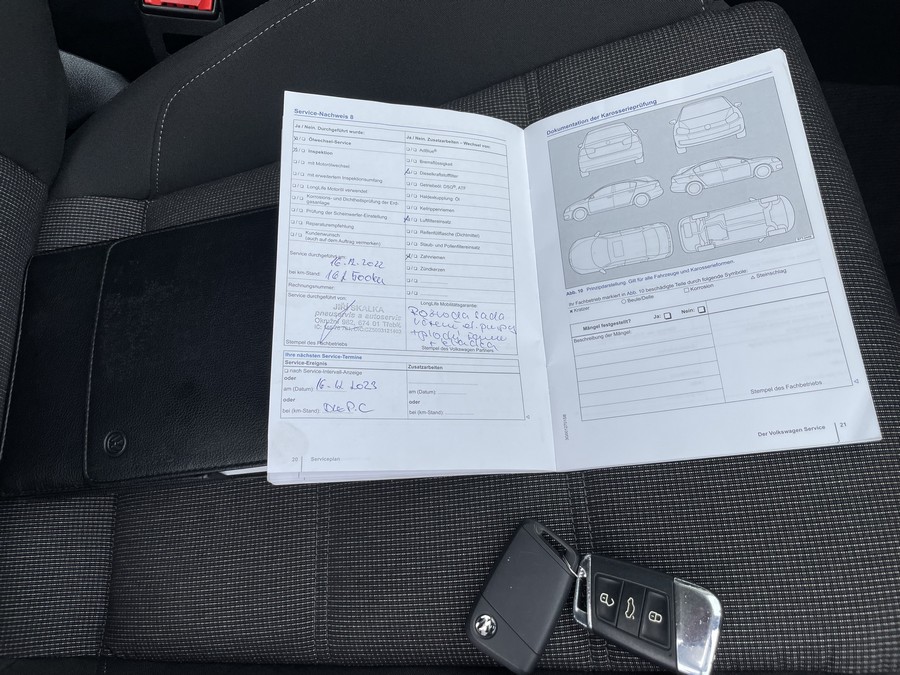 Service-Nachweis 8
Ja / Nein. Durchgeführt wurde:
Ölwechsel-Service
Inspektion
mit Motorölwechsel
mit erweitertem Inspektionsumfang
LongLife Motoröl verwendet
Prüfung der Scheinwerfer-Einstellung
Reparaturempfehlung
Kundenwunsch
(auch auf dem Auftrag vermerken)
Service durchgeführt am:
16.12.2022
bei km-Stand:
Rechnungsnummer:
Service durchgeführt von:
JIŘÍ SKALKA
pneuservis a autoservis
Stempel des Fachbetriebs
Ja / Nein. Zusatzarbeiten – Wechsel von:
AdBlue®
Bremsflüssigkeit
Dieselkraftstofffilter
Getriebeöl: DSG®, ATF
Haldexkupplung: Öl
Keilrippenriemen
Luftfiltereinsatz
Reifenfüllflasche (Dichtmittel)
Staub- und Pollenfiltereinsatz
Zahnriemen
Zündkerzen
LongLife Mobilitätsgarantie:
Stempel des Volkswagen Partners
Ihre nächsten Service-Termine
Service-Ereignis
nach Service-Intervall-Anzeige
oder
am (Datum):
16.12.2023
oder
bei (km-Stand):
DLE P.C
Zusatzarbeiten
am (Datum):
oder
bei (km-Stand):
20
Serviceplan
Dokumentation der Karosserieprüfung
Abb. 10 Prinzipdarstellung: Gilt für alle Fahrzeuge und Karosserieformen.
Ihr Fachbetrieb markiert in Abb. 10 beschädigte Teile durch folgende Symbole:
× Kratzer ○ Beule/Delle □ Korrosion △ Steinschlag
Mängel festgestellt? Ja: Nein:
Beschreibung der Mängel:
Stempel des Fachbetriebs
Der Volkswagen Service
21